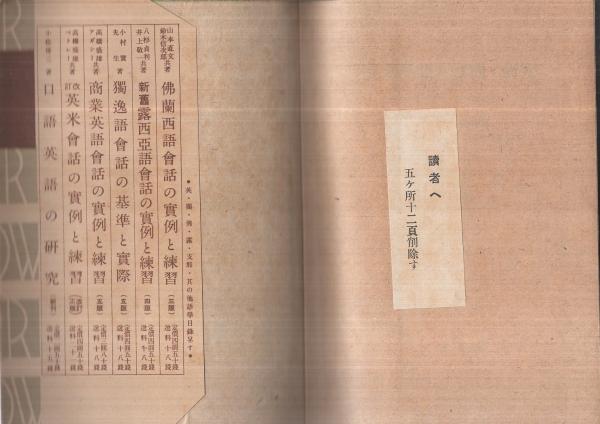 讀者へ
五ケ所十二頁削除す
●英・獨・佛・露・支那・其の他語學目錄呈す●
山本直文
鈴木信次郎共著
佛蘭西語會話の實例と練習
（三版）
定價四圓五十錢
送料十八錢
八杉貞利
井上敬一共著
新舊露西亞語會話の實例と練習
（四版）
定價四圓五十錢
小村實
先生著
獨逸語會話の基準と實際
（五版）
定價四圓五十錢
送料十八錢
高橋盛雄
アガシー共著
商業英語會話の實例と練習
（五版）
送料十八錢
高橋盛雄
共著
改訂
英米會話の實例と練習
（改訂三版）
口語英語の研究
（新刊）